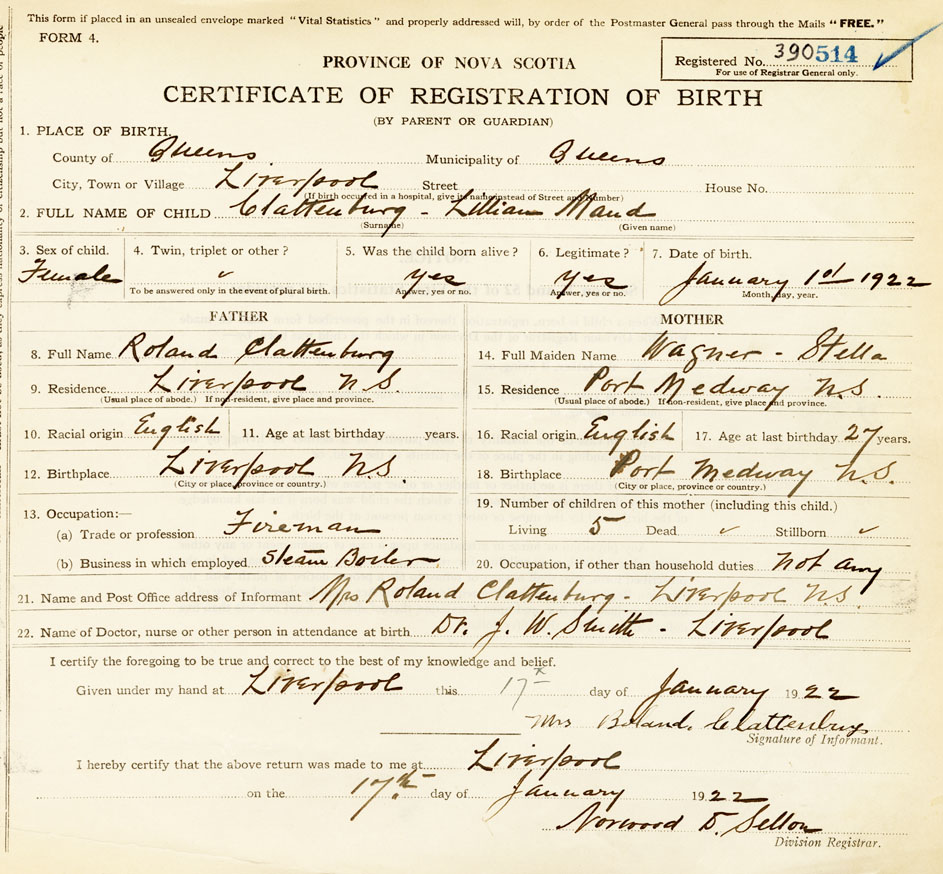 This form if placed in an unsealed envelope marked "Vital Statistics" and properly addressed will, by order of the Postmaster General pass through the Mails "FREE."
FORM 4.
Registered No. 390514
For use of Registrar General only.
PROVINCE OF NOVA SCOTIA
CERTIFICATE OF REGISTRATION OF BIRTH
(BY PARENT OR GUARDIAN)
1. PLACE OF BIRTH.
County of Queens Municipality of Queens
City, Town or Village Liverpool Street House No.
(If birth occurred in a hospital, give its name instead of Street and Number)
2. FULL NAME OF CHILD Clattenburg - Lillian Maud
(Surname) (Given name)
3. Sex of child. 4. Twin, triplet or other? 5. Was the child born alive? 6. Legitimate? 7. Date of birth.
Female yes yes January 1st 1922
To be answered only in the event of plural birth. Answer, yes or no. Answer, yes or no. Month, day, year.
FATHER
8. Full Name Roland Clattenburg
9. Residence Liverpool N.S.
(Usual place of abode.) If non-resident, give place and province.
10. Racial origin English 11. Age at last birthday years.
12. Birthplace Liverpool N.S.
(City or place, province or country.)
13. Occupation:—
(a) Trade or profession Fireman
(b) Business in which employed Steam Boiler
MOTHER
14. Full Maiden Name Wagner - Stella
15. Residence Port Medway N.S.
(Usual place of abode.) If non-resident, give place and province.
16. Racial origin English 17. Age at last birthday 27 years.
18. Birthplace Port Medway N.S.
(City or place, province or country.)
19. Number of children of this mother (including this child.)
Living 5 Dead Stillborn
20. Occupation, if other than household duties not any
21. Name and Post Office address of Informant Mrs Roland Clattenburg - Liverpool N.S.
22. Name of Doctor, nurse or other person in attendance at birth Dr. J. W. Smith - Liverpool
I certify the foregoing to be true and correct to the best of my knowledge and belief.
Given under my hand at Liverpool this 17 day of January 1922
Mrs Roland Clattenburg
Signature of Informant.
I hereby certify that the above return was made to me at Liverpool
on the 17th day of January 1922
Norwood D. Sellon
Division Registrar.